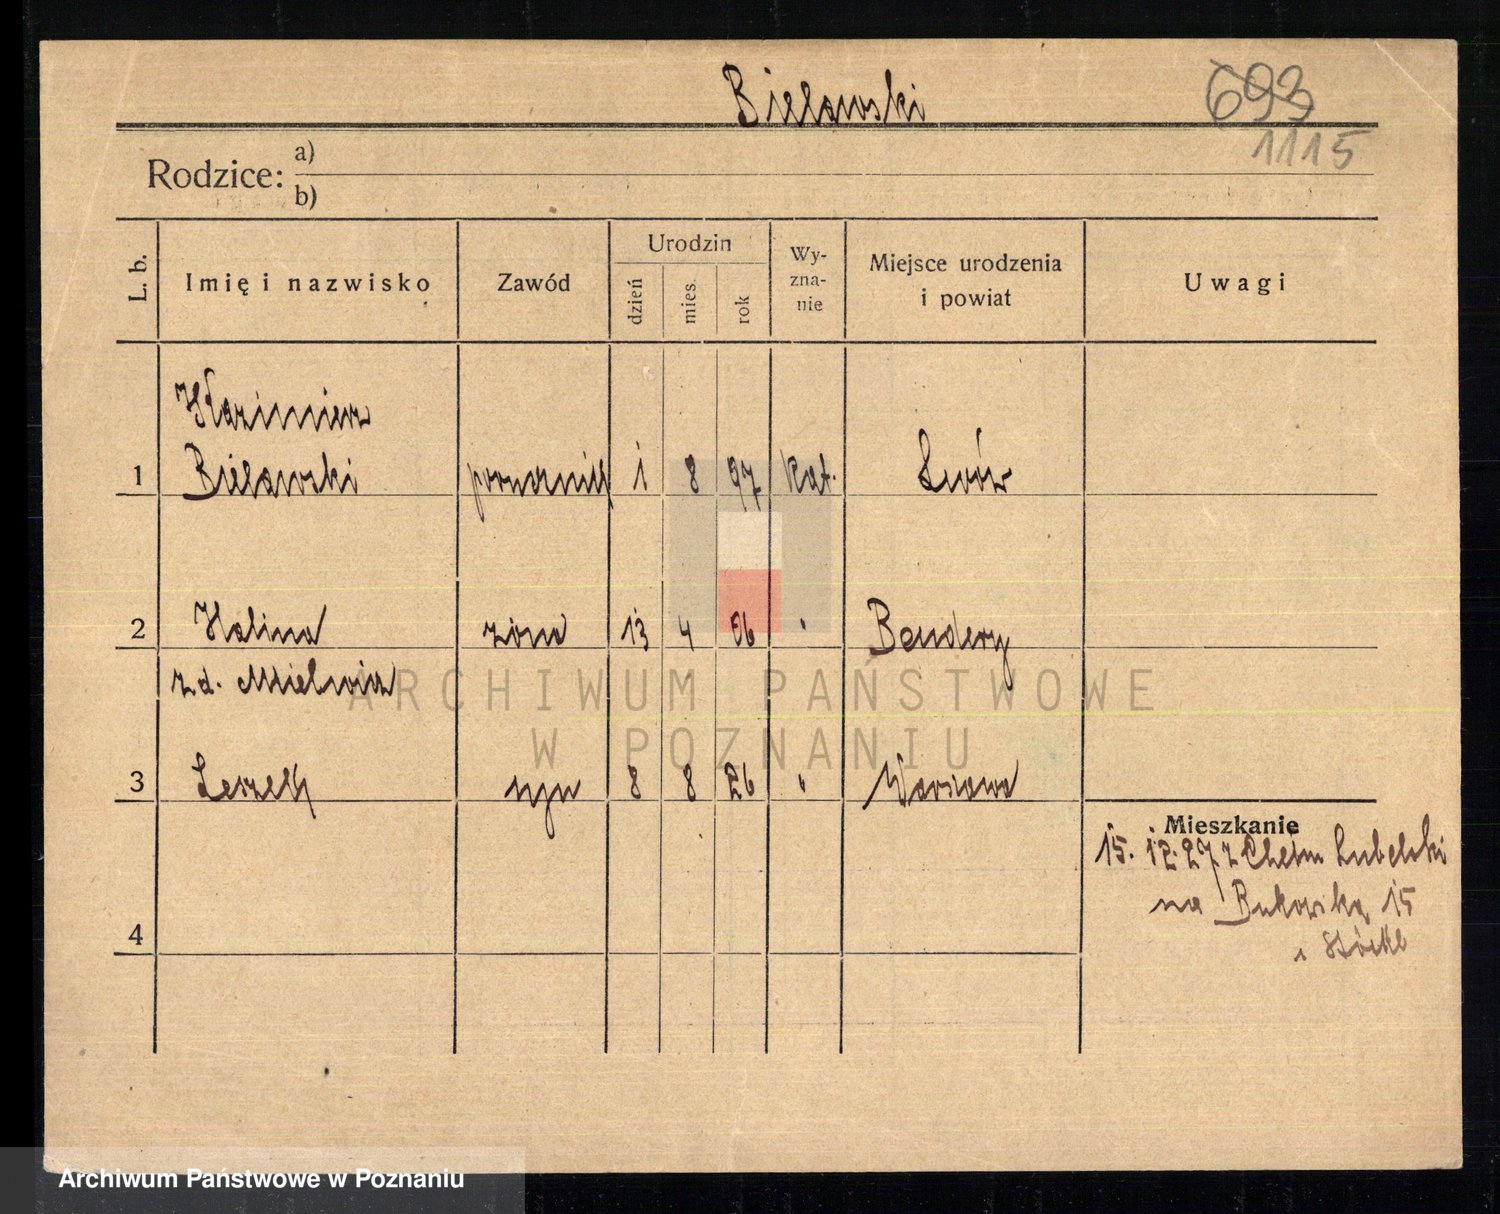 Bielawski
693
1115
Rodzice: a)
b)
L. b.
Imię i nazwisko
Zawód
Urodzin
dzień
mies.
rok
Wy-
zna-
nie
Miejsce urodzenia
i powiat
Uwagi
Kazimierz
1 Bielawski porucznik 1 8 97 Kat. Lwów
2 Halina żona 13 4 06 " Bendery
z d.
3 Leszek syn 8 8 26 " Warszawa
Mieszkanie
15. 12. 27 z Chełm Lubelski
4
na Bukowska 15
ARCHIWUM PAŃSTWOWE
W POZNANIU
Archiwum Państwowe w Poznaniu